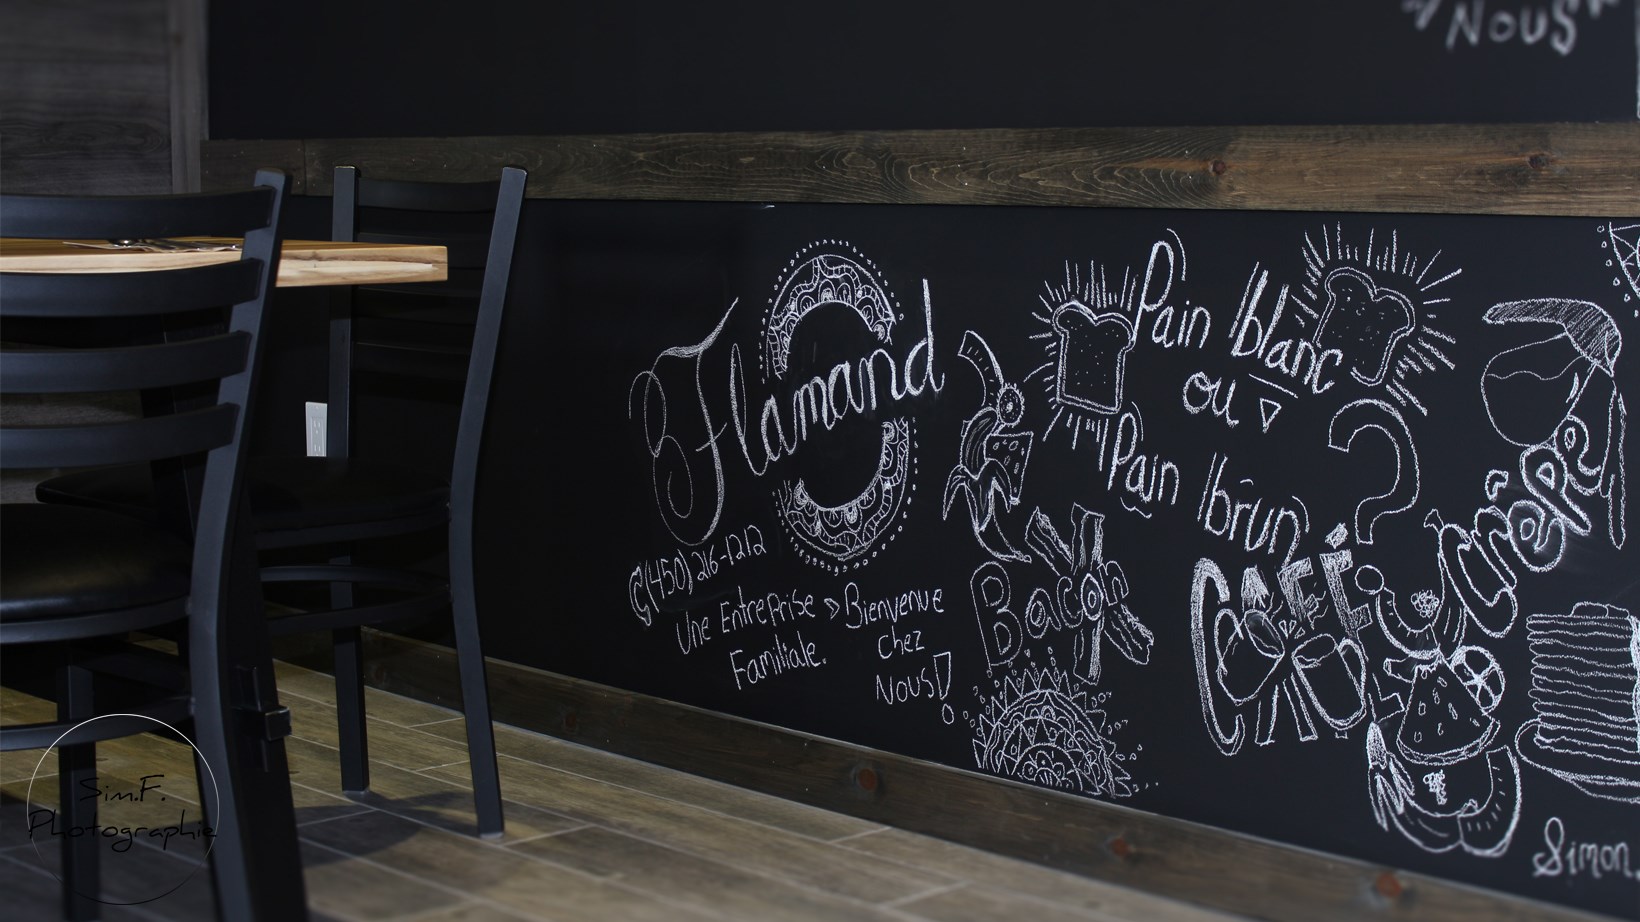 NOUS
Flamand
(450) 216-1212
Une Entreprise
Familiale.
Bienvenue
Chez
Nous!
Pain blanc
ou
Pain brun
?
Bacon
CAFÉ
Crêpe
Simon.
Sim.F.
Photographie